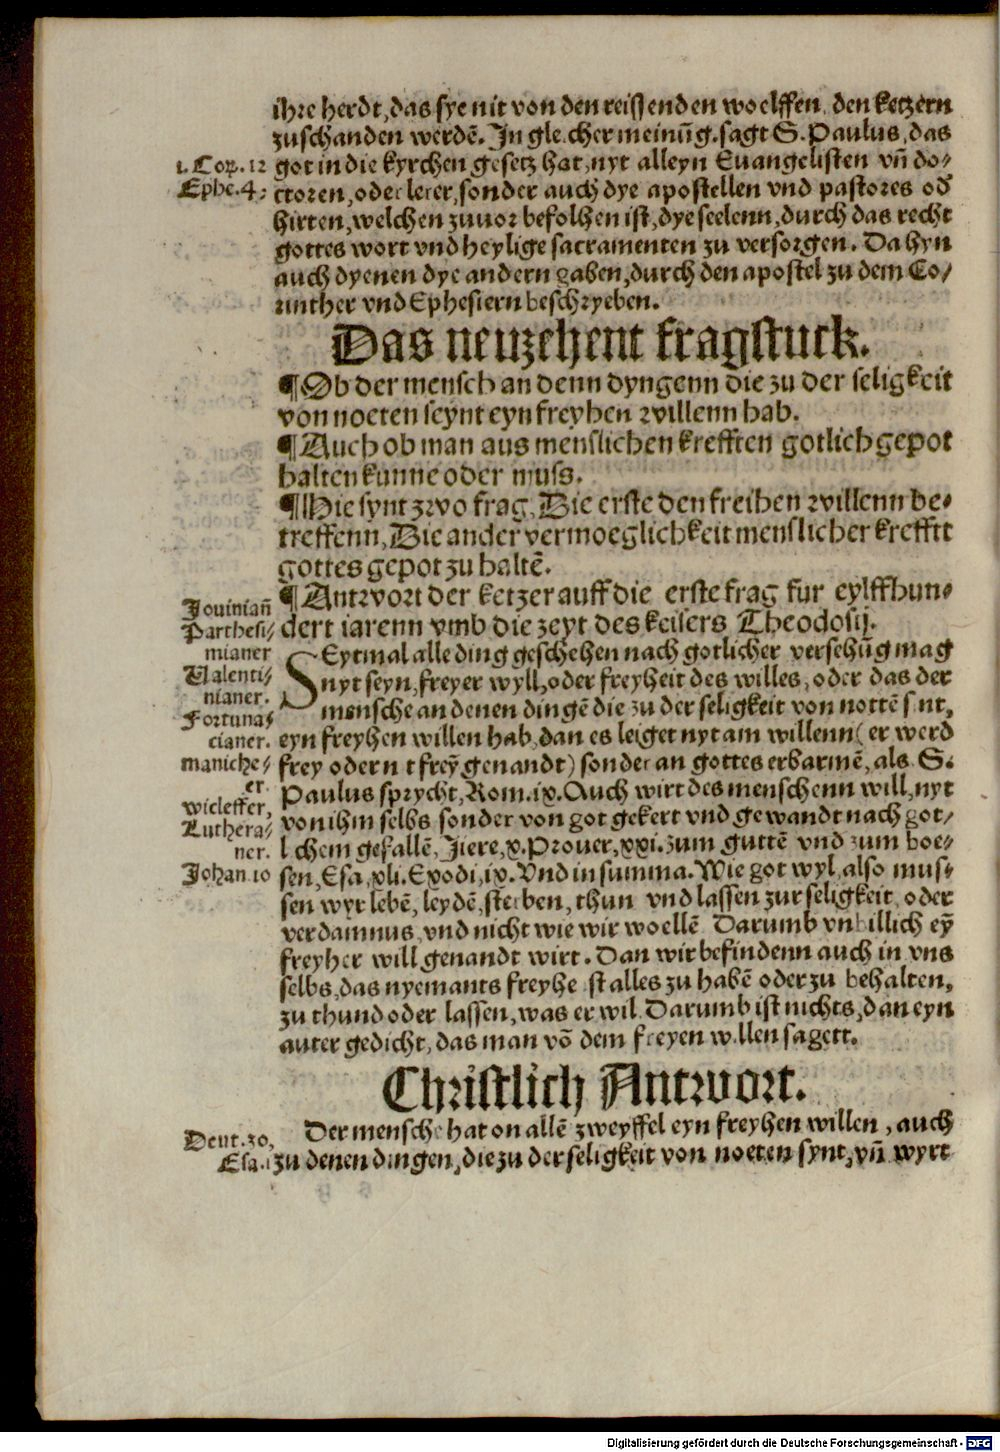 ihre herdt, das sye nit von den reissenden woelffen, den ketzern
zuschanden werdē. In gleicher meinūg, sagt S. Paulus, das
1. Cor. 12
got in die kyrchen gesetz hat, nyt alleyn Euangelisten vñ do-
Ephe. 4.
ctoren, oder lerer, sonder auch dye apostellen vnd pastores od
hirten, welchen zuuor befolhen ist, dye seelenn, durch das recht
gottes wort vnd heylige sacramenten zu versorgen. Da hyn
auch dyenen dye andern gaben, durch den apostel zu dem Co/
rinther vnd Ephesiern beschryeben.
Das neuzehent fragstuck.
¶ Ob der mensch an denn dyngenn die zu der seligkeit
von noeten seynt eyn freyhen willenn hab.
¶ Auch ob man aus menslichen krefften gotlich gepot
halten kunne oder muss.
¶ Hie synt zwo frag, Die erste den freihen willenn be-
treffenn, Die ander vermoeglichkeit menslicher krefftt
gottes gepot zu haltē.
¶ Antwort der ketzer auff die erste frag fur eylffhun-
dert iarenn vmb die zeyt des keisers Theodosij.
Jouiniañ
Parthesi/
mianer
Valenti/
nianer.
Fortuna/
cianer.
maniche/
er.
wicleffer,
Luthera/
ner.
Johan. 10
SEytmal alle ding geschehen nach gotlicher versehūg mag
nyt seyn, freyer wyll, oder freyheit des willes, oder das der
mensche an denen dingē die zu der seligkeit von nottē sint,
eyn freyhen willen hab, dan es leiget nyt am willenn (er werd
frey oder nit frey genandt) sonder an gottes erbarmē, als S.
Paulus sprycht, Rom. ix. Auch wirt des menschenn will, nyt
von ihm selbs sonder von got gekert vnd gewandt nach got/
lichem gefallē, Jiere, x. Prouer, xxi. zum guttē vnd zum boe-
sen, Esa, xli. Exodi, ix. Vnd in summa. Wie got wyl, also mus-
sen wyr lebē, leydē, sterben, thun vnd lassen zur seligkeit, oder
verdamnus, vnd nicht wie wir woellē Darumb vnbillich eȳ
freyher will genandt wirt. Dan wir befindenn auch in vns
selbs, das nyemants freyhe ist alles zu habē oder zu behalten,
zu thund oder lassen, was er wil. Darumb ist nichts, dan eyn
auter gedicht, das man vō dem freyen willen sagett.
Christlich Antwort.
Deut. 30,
Esa. 1
Der mensche hat on allē zweyffel eyn freyhen willen, auch
zu denen dingen, die zu der seligkeit von noeten synt, vñ wyrt
Digitalisierung gefördert durch die Deutsche Forschungsgemeinschaft - DFG